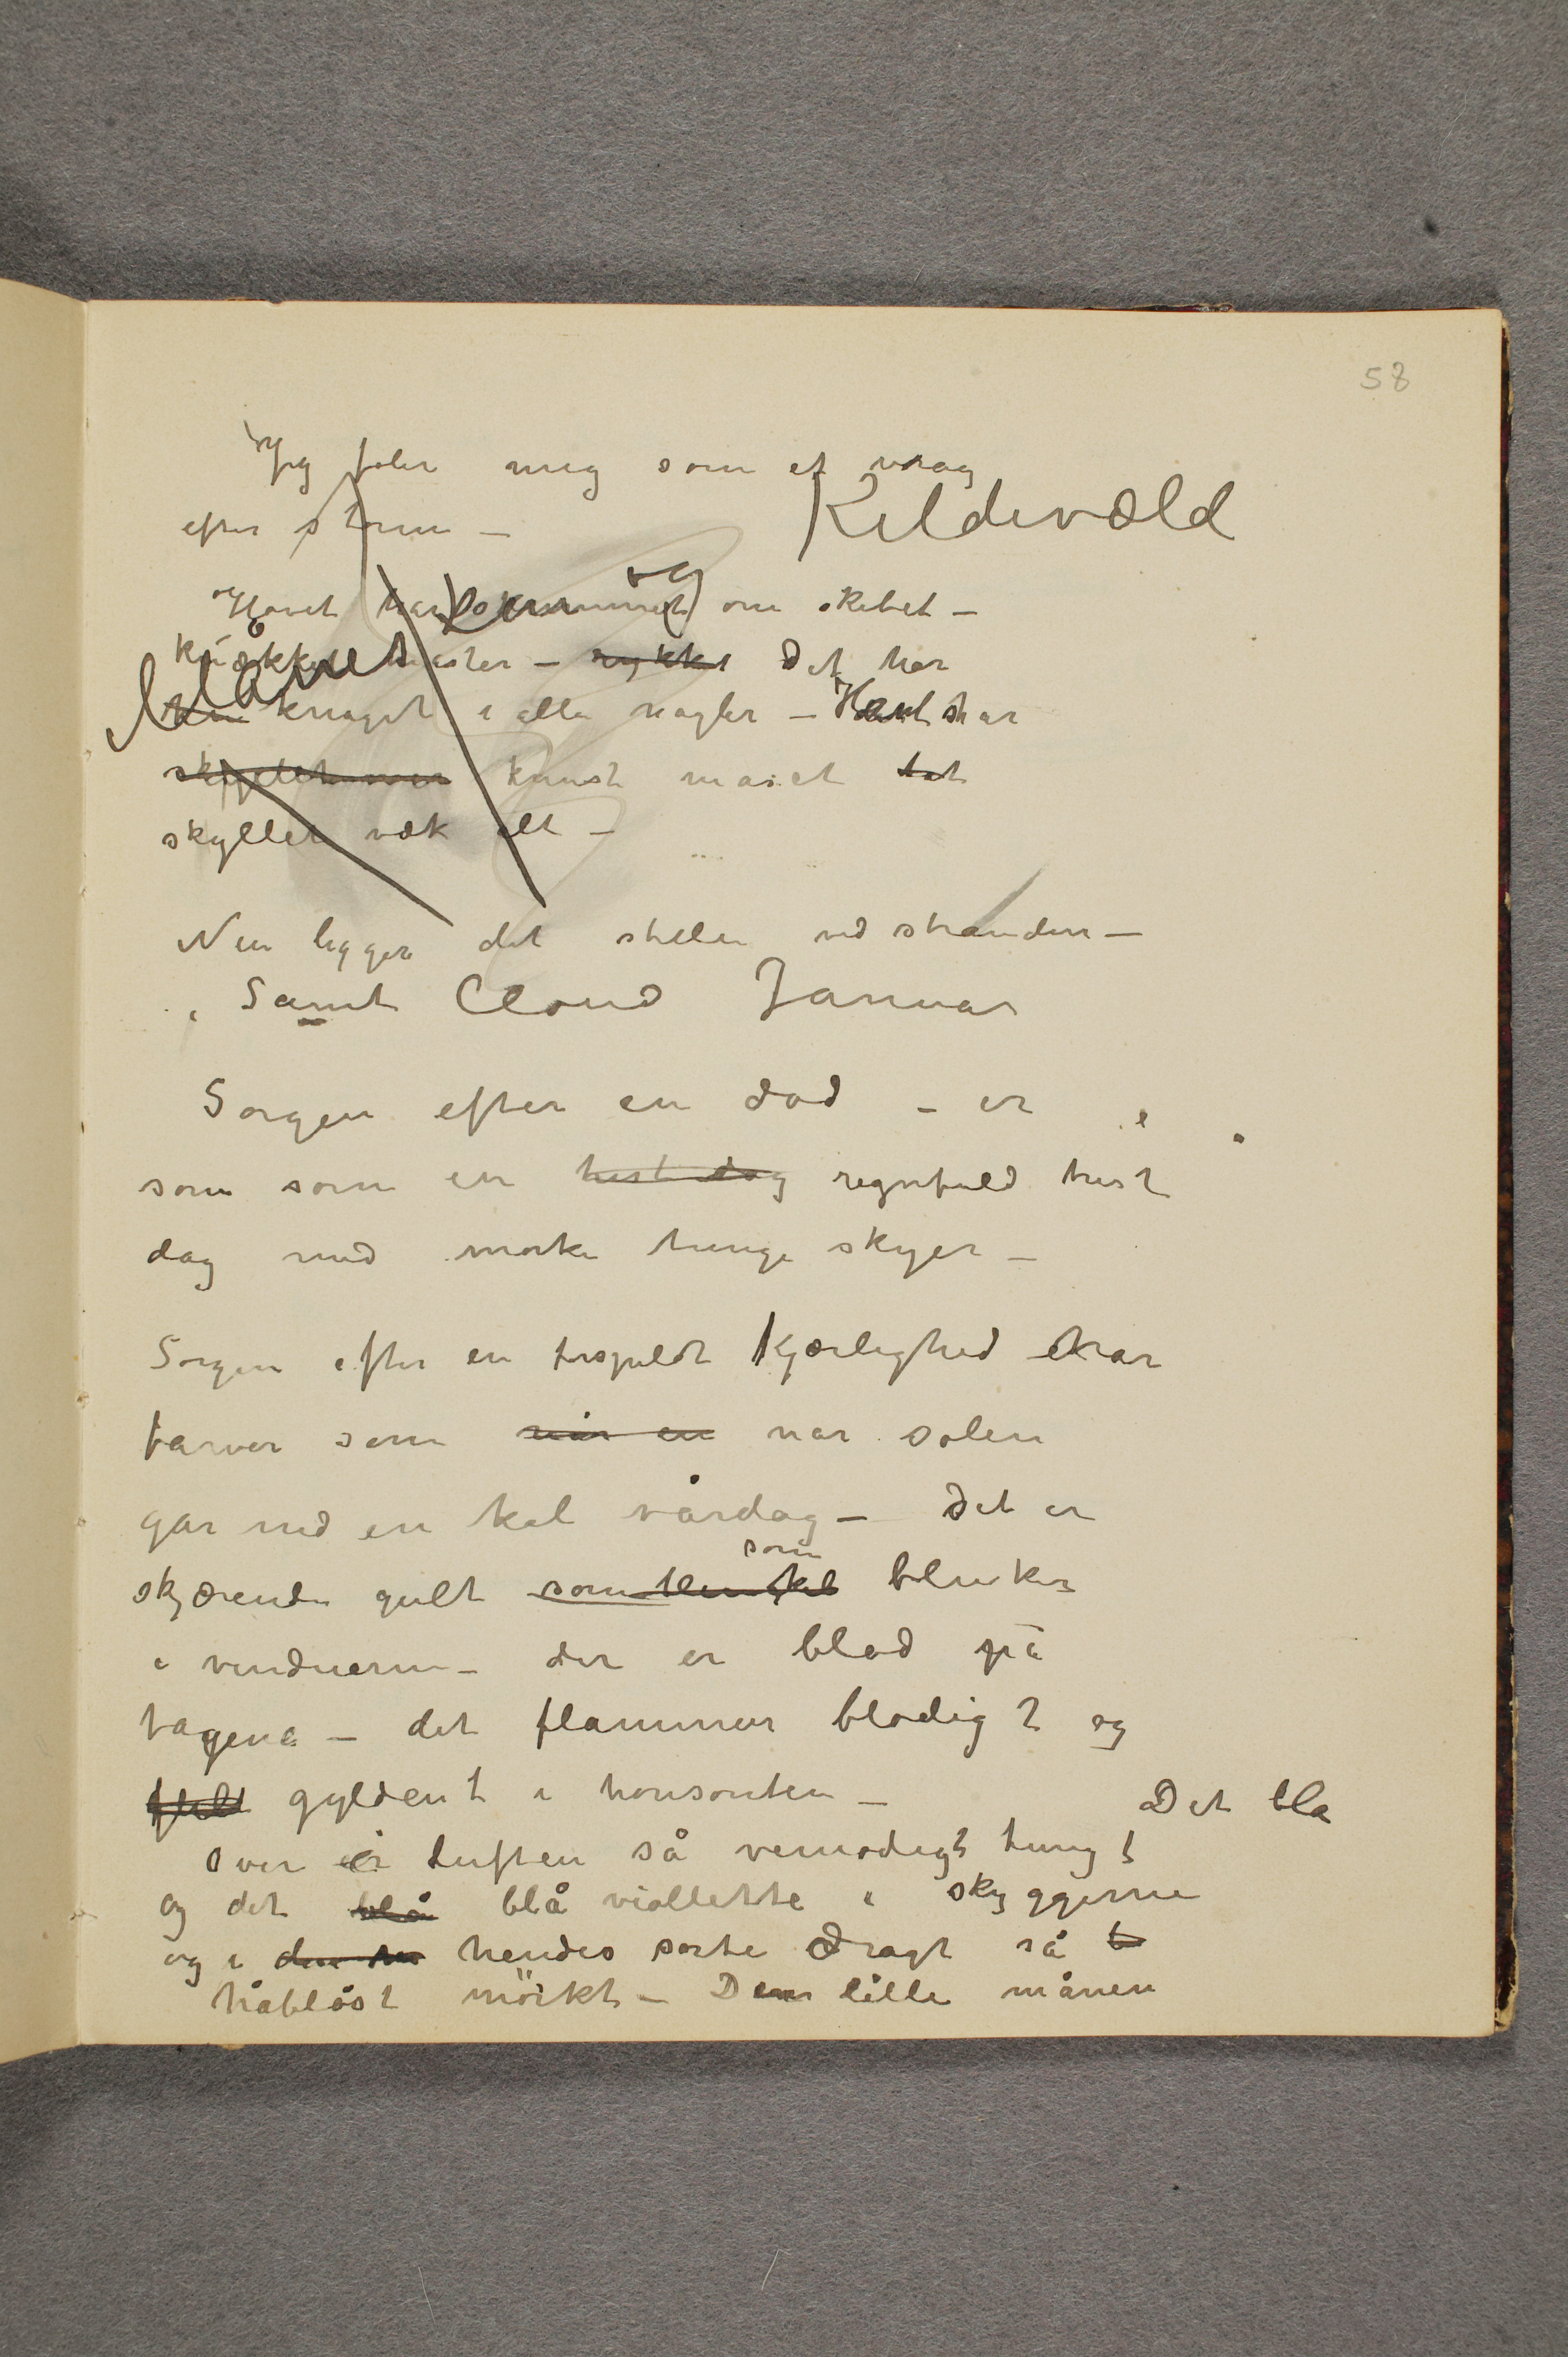 58
Jeg føler mig som et vrag
efter storm –
Kildevæld
og
Havet har skummet om skibet –
knækket master – rykket Det har
knaget i alle nagler – Havet har
knust maset tat
skyllet væk alt –
Nu ligger det stille ved stranden –
i Saint Cloud Januar
Sorgen efter en død – er
som som en høst dag regnfuld høst
dag med mørke tunge skyer –
Sorgen efter en forspildt kjærlighed har
farver som når en nar solen
gar ned en kal vårdag – det er
som
skjærende gult som blinker
i vinduerne – der er blod på
tagene – det flammer blodigt og
gyldent i horisonten –
Det bla
Over er luften så vemodigt tungt
og det blå blå viollette i skyggerne
og i hendes sorte dragt så t
håbløst mörkt – Den lille månen